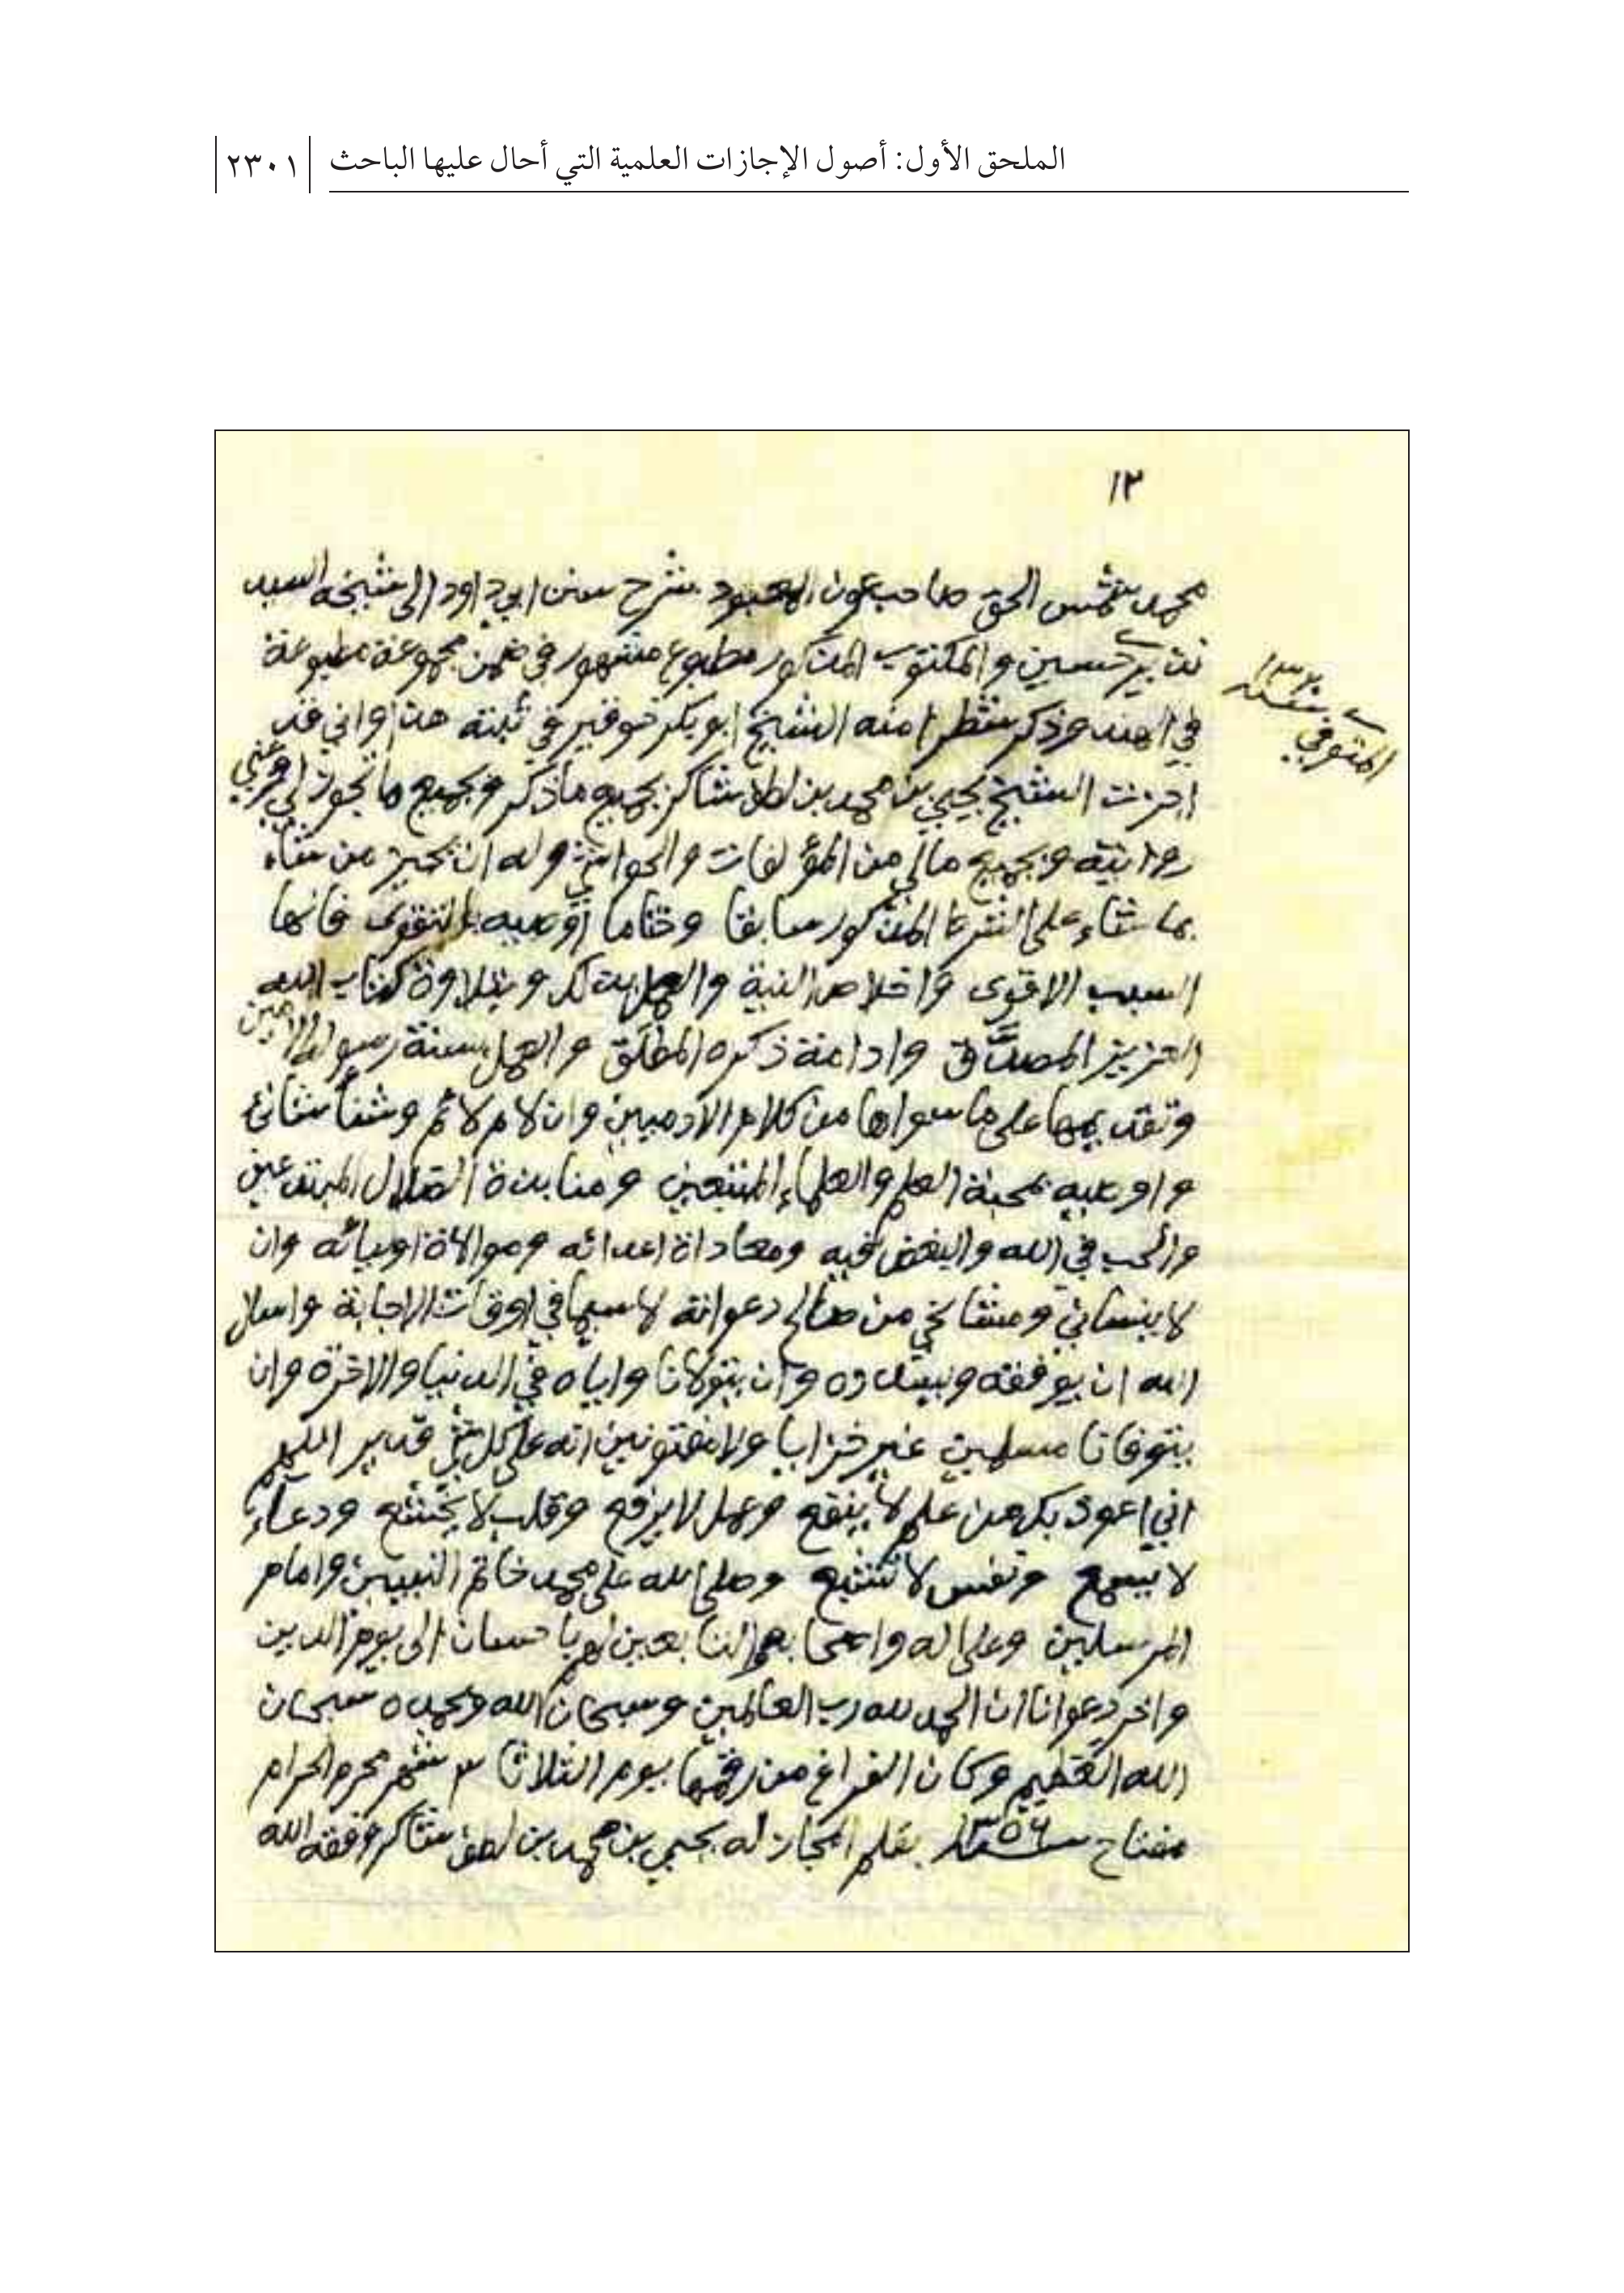 الملحق الأول: أصول الإجازات العلمية التي أحال عليها الباحث ٢٣٠١
١٢
محمد شمس الحق صاحب عون المعبود شرح سنن ابي داود الى شيخه السيد
نذير حسين والمكتوب المذكور مطبوع مشهور في ضمن مجموعة مطبوعة
المتوفي سنة ١٣٢٠
في الهند وذكر شطرا منه الشيخ ابو بكر خوقير في ثبته هذا واني قد
اجزت الشيخ يحيى بن محمد بن لطف شاكر بجميع ما ذكر وبجميع ما تجوز لي وعني
روايته وبجميع مالي من المؤلفات والحواشي وله ان يجيز من شاء
بما شاء على الشرط المذكور سابقا وختاما أوصيه بالتقوى فانها
السبب الاقوى واخلاص النية والعمل بذلك وبتلاوة كتاب الله
العزيز المصدَّق وادامة ذكره المطلق والعمل بسنة رسوله الامين
وتقديمها على ما سواها من كلام الآدميين وان لام لائم وشنأ شانئ
واوصيه بمحبة العلم والعلماء المتبعين ومنابذة الضلال المبتدعين
والحب في الله والبغض فيه ومعاداة اعدائه وموالاة اوليائه وان
لا ينساني ومشائخي من صالح دعواته لا سيما في اوقات الاجابة واسال
الله ان يوفقه ويسدده وان يتولانا واياه في الدنيا والاخرة وان
يتوفانا مسلمين غير خزايا ولا مفتونين انه على كل شئ قدير اللهم
اني اعوذ بك من علم لا ينفع وعمل لا يرفع وقلب لا يخشع ودعاء
لا يسمع ونفس لا تشبع وصلى الله على محمد خاتم النبيين وامام
المرسلين وعلى اله واصحابه والتابعين لهم باحسان الى يوم الدين
واخر دعوانا ان الحمد لله رب العالمين وسبحان الله وبحمده سبحان
الله العظيم وكان الفراغ من رقمها يوم الثلاثا ٣ شهر محرم الحرام
مفتاح سنة ١٣٥٦ بقلم المجاز له يحيى بن محمد بن لطف شاكر وفقه الله